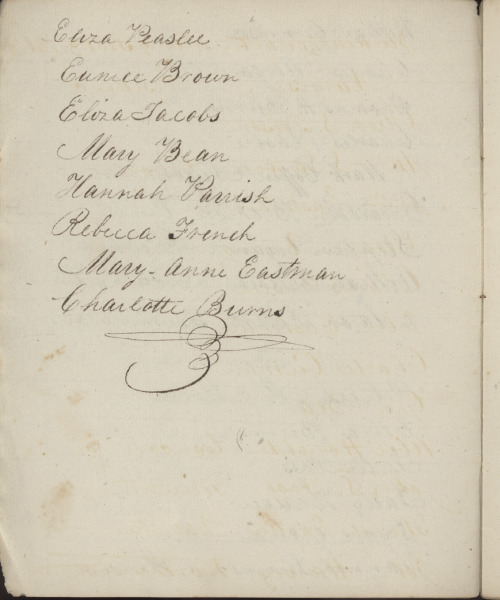 Eliza Peaslee
Eunice Brown
Eliza Jacobs
Mary Bean
Hannah Parrish
Rebecca French
Mary-Anne Eastman
Charlotte Burns